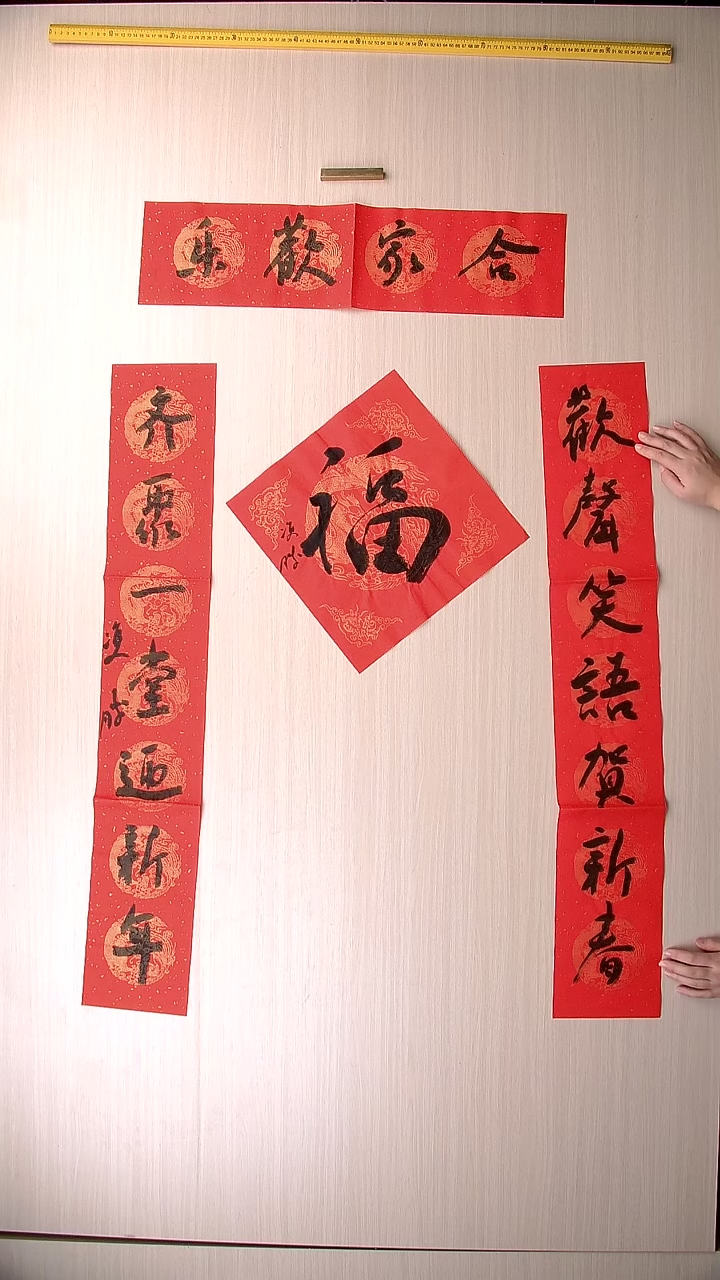 合家歡乐
歡聲笑語賀新春
齐聚一堂迎新年
福